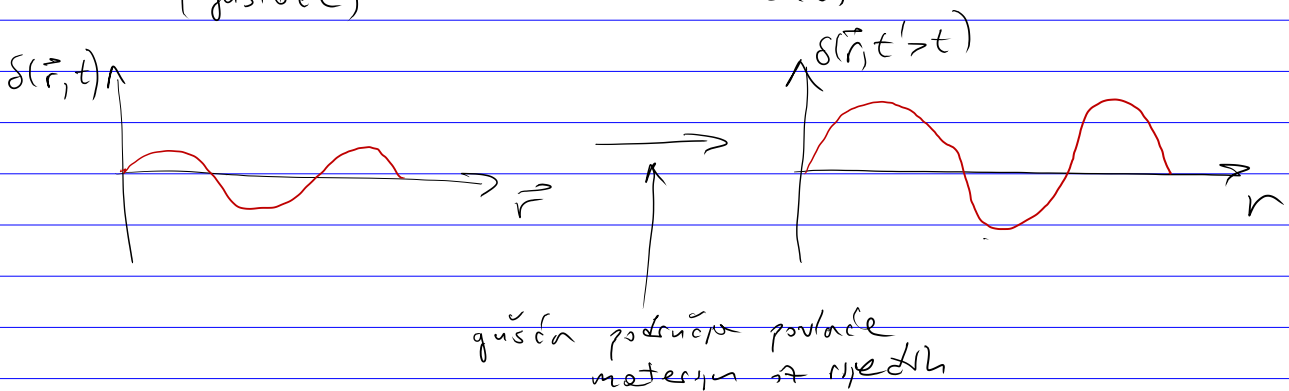 (gustoće)
δ(r⃗, t)
r⃗
δ(r⃗, t' > t)
r
gušća područja povlače
materiju iz rijetkih